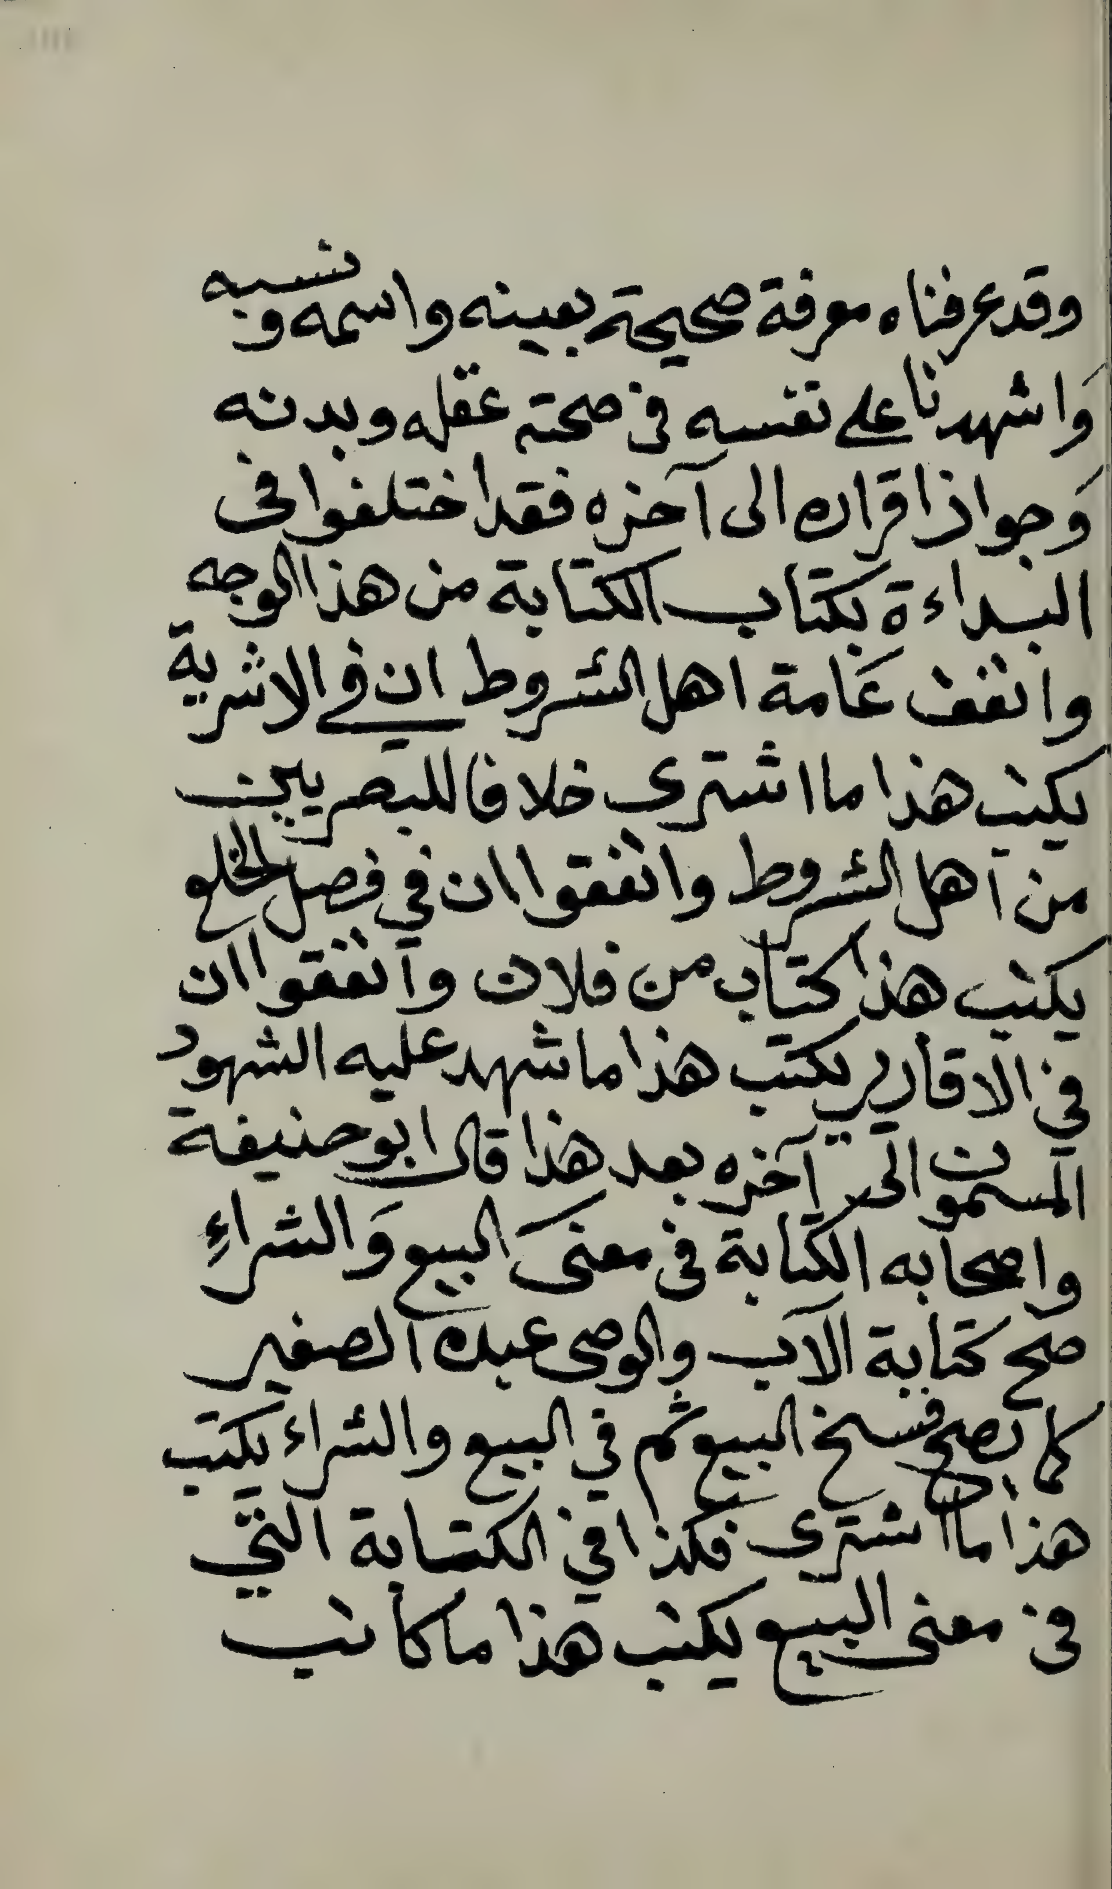 وقد عرفناه معرفة صحيحة بعينه واسمه ونسبه
وَاشهدنا على نفسه في صحة عقله وبدنه
وَجواز اقراره الى آخره فقد اختلفوا في
البداءة بكتاب الكتابة من هذا الوجه
واتفقت عَامة اهل الشروط ان في الاشرية
يكتب هذا ما اشترى خلافا للبصريين
من آهل الشروط واتفقوا ان في فصل الخلع
يكتب هذا كتاب من فلان وآتفقوا ان
في الاقارير يكتب هذا ما شهد عليه الشهود
المسمون الى آخره بعد هذا قال ابو حنيفة
واصحابه الكتابة في معنى البيع وَالشراءِ
صح كتابة الآب والوصى عبده الصغير
كما يصح فسخ البيع ثم في البيع والشراء يكتب
هذا ما اشترى فكذا في الكتابة التي
في معنى البيع يكتب هذا ما كاتب